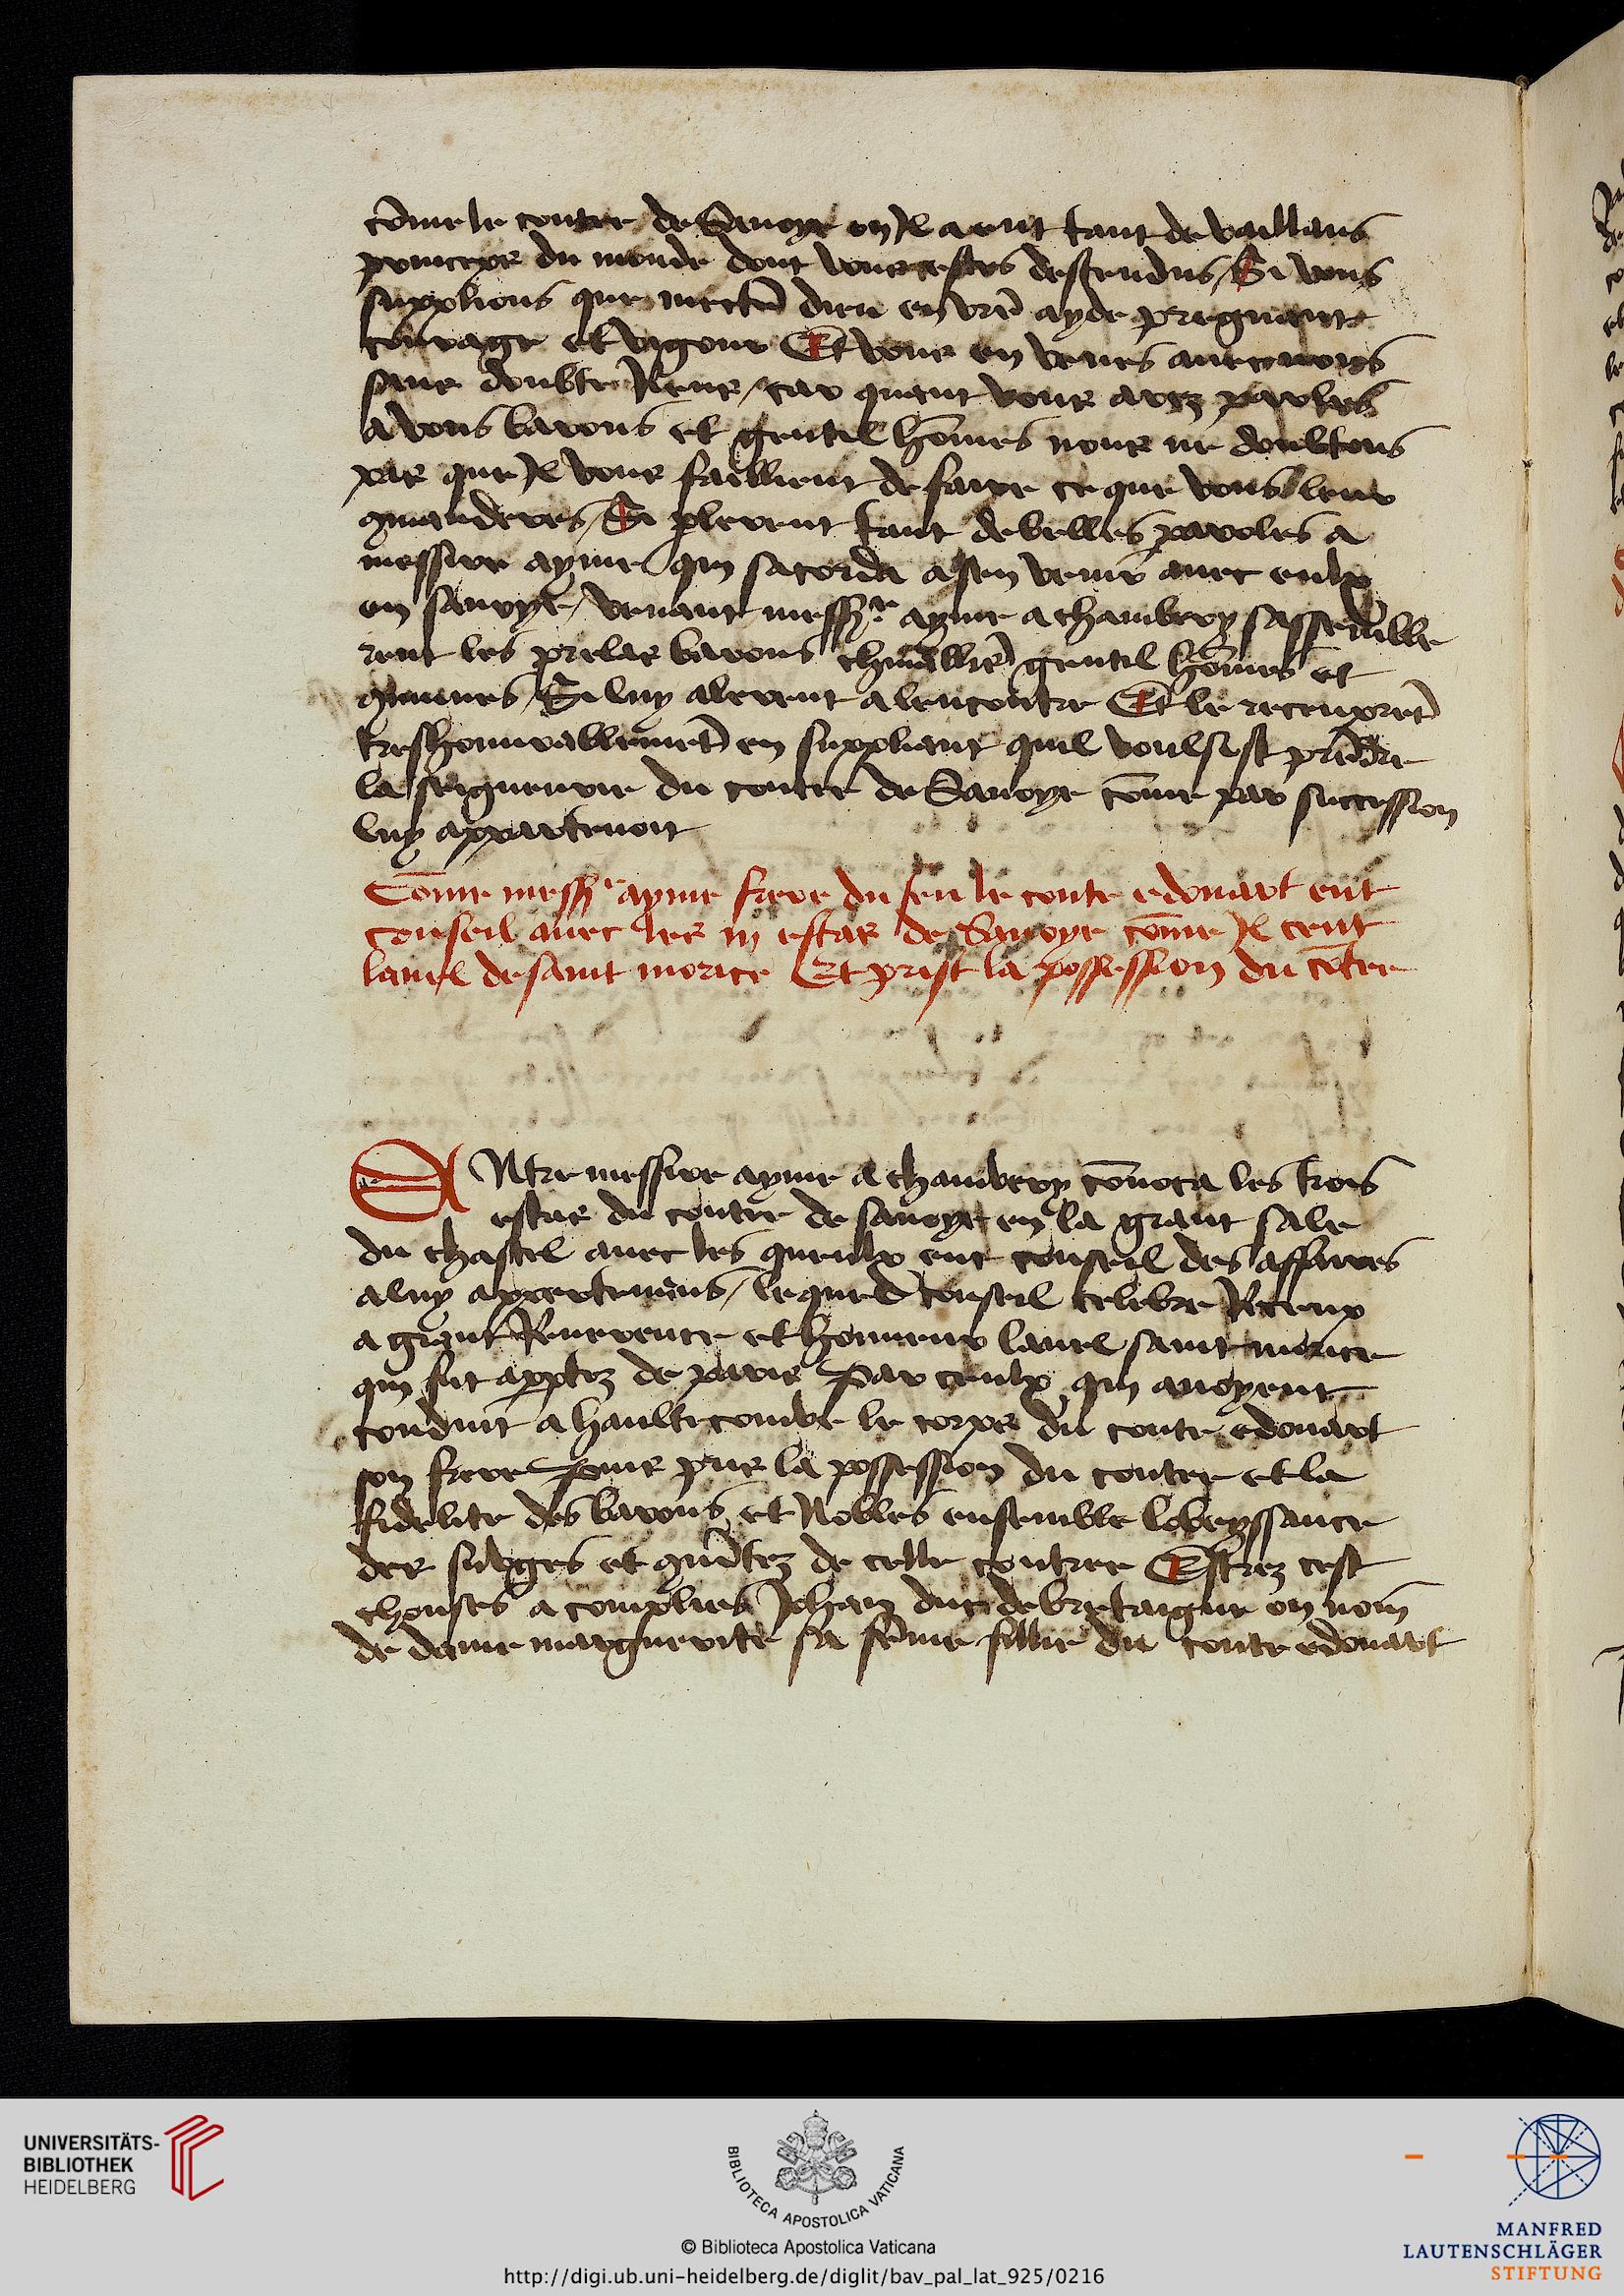 cōme le contee de Sauoye ou Il a eut tant de vaillans
princeps du monde dont vous estes descendus / Si vous
supplions que mectes dieu en vrē ayde pregnant
courage et vigour Et vous en venes auec nous
sans doubte Riens / car quant vous avez parles
a vous barons et gentil hōmes nous ne doubtons
pas que Il vous faillient de faire ce que vous leur
9manderes / Si plerent tant de belles paroles a
messire ayme qui sacorda a sen venir auec eulx
en sauoye / venant messr̄ ayme a chambery sassemble
rent les prelas barons chiualliers gentil hōmes et
9munes / Si luy alerent a lencontre Et le receuprēt
treshonnorablemēt en suppliant quil voulsist prēdre
la seigneurie du contee de Sauoye cōme par succession
luy appartenoit
Cōme messr̄ ayme frere du feu le conte edouart eut
conseil auec les iij estas de Sauoye cōme Il ceut
lanel de saint morice Et prist la possession du cōtee
ENtre messire ayme a chambery cōuoca les trois
estas du contee de sauoye en la grant sale
du chastel auec les queulx eut conseil des affaires
a luy appertenens / le quel conseil celebre Receup
a grant Reuerence et honneur lanel saint morice
qui fut apptez de paris Par ceulx qui auoyent
conduit a haultecombe le corps du conte edouart
son frere Pour prē la possession du contee et la
fidelite des barons et Nobles ensemble lobeyssance
des subges et 9mūtez de celle contree Estrez cest
chouses a complies Johan duc de bretaigne on nom
de dame marguerite sa fēme fillie du conte edouart
UNIVERSITÄTS-
BIBLIOTHEK
HEIDELBERG
BIBLIOTECA APOSTOLICA VATICANA
© Biblioteca Apostolica Vaticana
http://digi.ub.uni-heidelberg.de/diglit/bav_pal_lat_925/0216
MANFRED
LAUTENSCHLÄGER
STIFTUNG